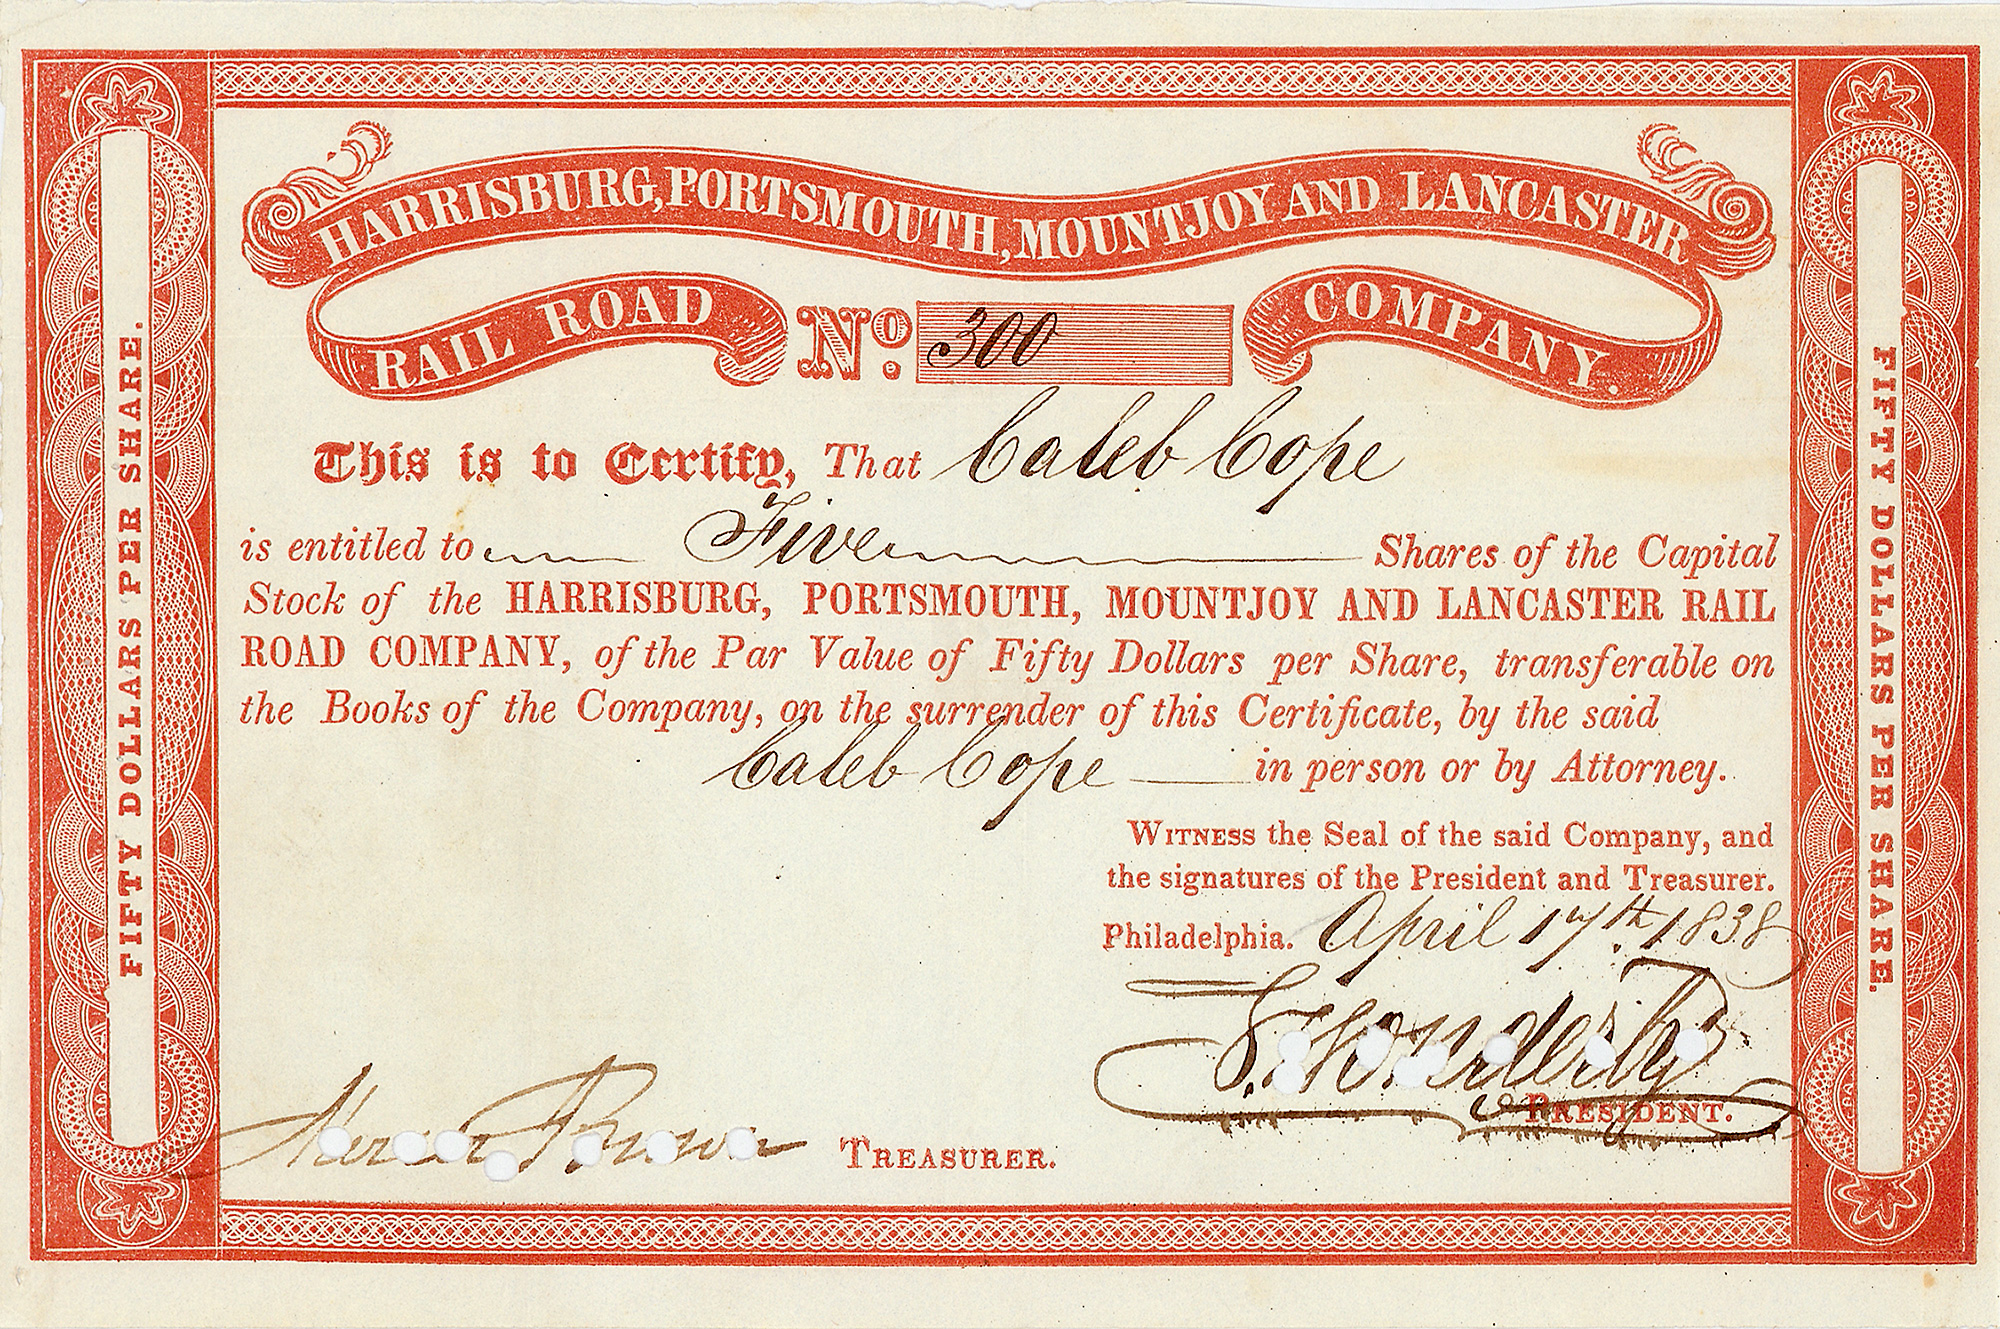 HARRISBURG, PORTSMOUTH, MOUNTJOY AND LANCASTER
RAIL ROAD No. 300 COMPANY.
This is to Certify, That Caleb Cope
is entitled to Five Shares of the Capital
Stock of the HARRISBURG, PORTSMOUTH, MOUNTJOY AND LANCASTER RAIL
ROAD COMPANY, of the Par Value of Fifty Dollars per Share, transferable on
the Books of the Company, on the surrender of this Certificate, by the said
Caleb Cope in person or by Attorney.
WITNESS the Seal of the said Company, and
the signatures of the President and Treasurer.
Philadelphia. April 17th 1838
PRESIDENT.
TREASURER.
FIFTY DOLLARS PER SHARE.
FIFTY DOLLARS PER SHARE.